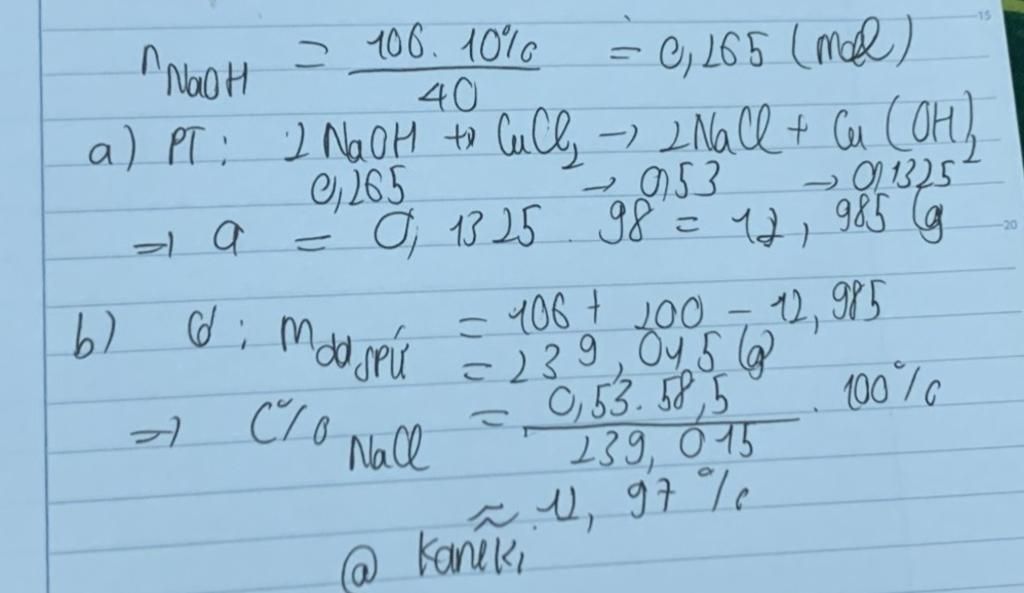 n NaOH = 106. 10% / 40 = 0,265 (mol)
a) PT: 2NaOH + CuCl2 → 2NaCl + Cu(OH)2
0,265 → 0,53 → 0,1325
=> a = 0,1325 . 98 = 12,985 (g
b) Có: m dd spứ = 106 + 200 - 12,985
= 239,015 (g)
=> C% NaCl = 0,53.58,5 / 239,015 . 100%
≈ 12,97%
@ Kaneki
15
20